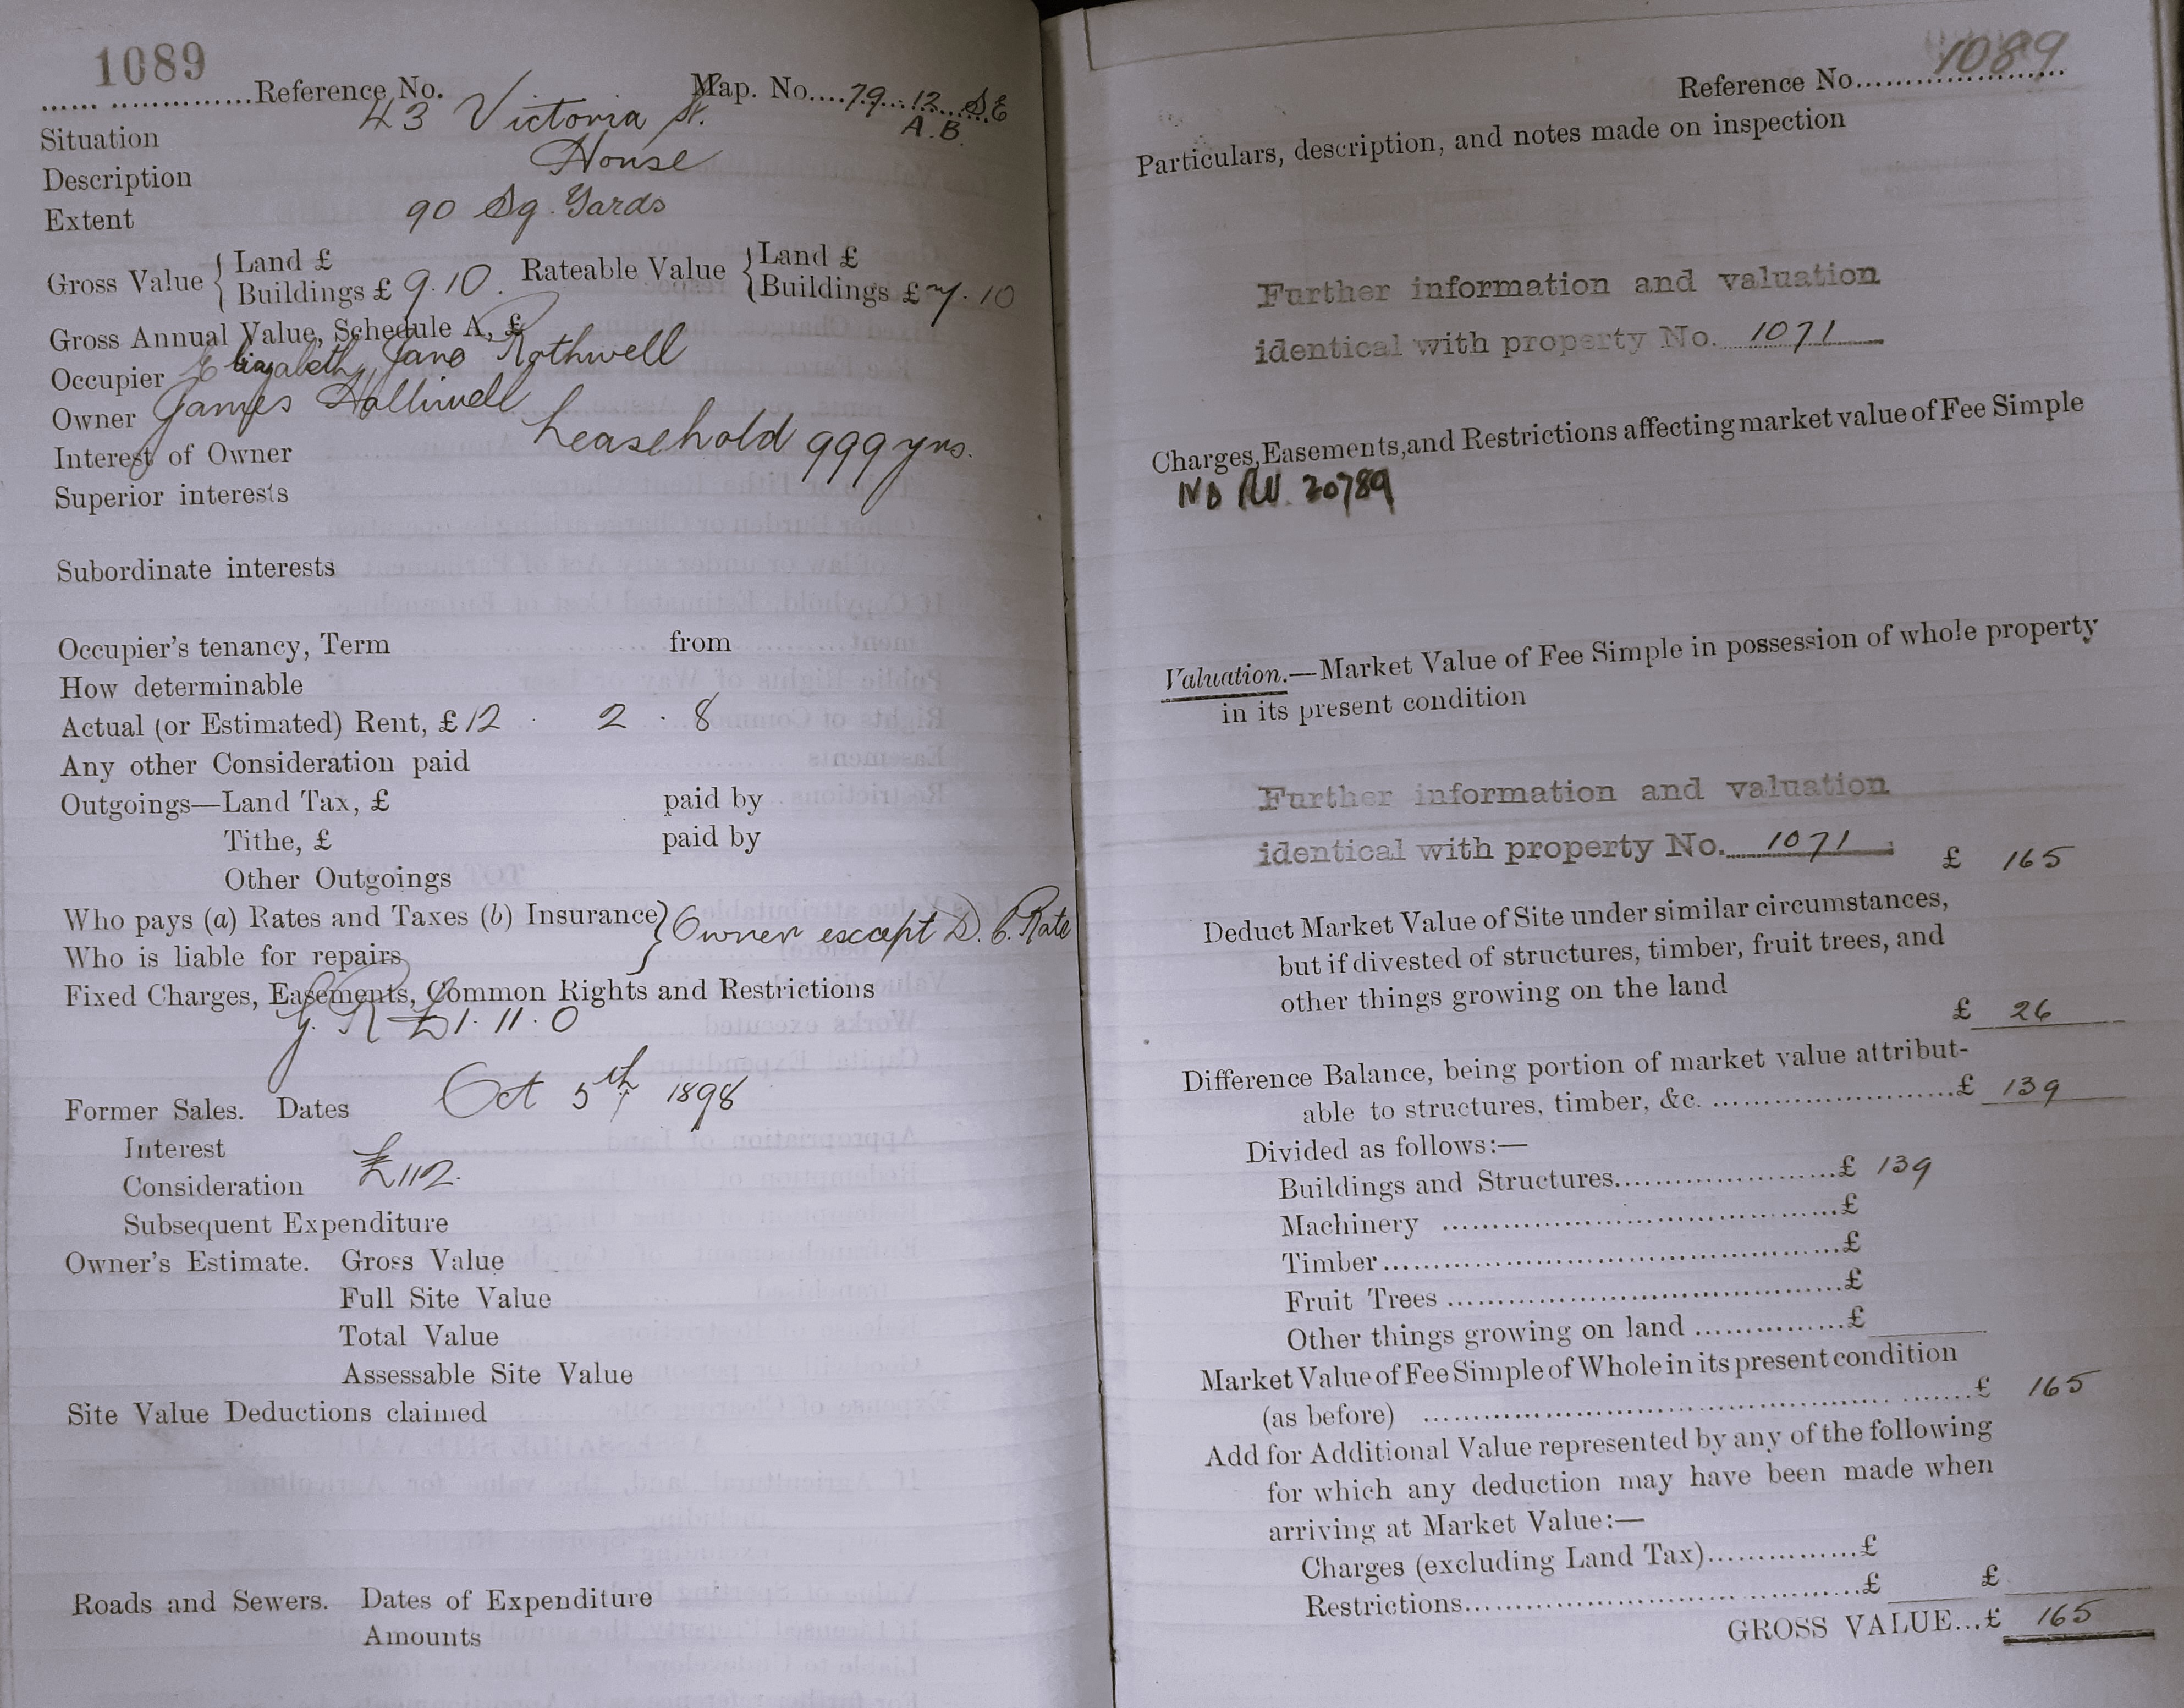 1089
Reference No. Map. No. 79 12 S.E
A.B.
Situation 43 Victoria St.
Description House
Extent 90 Sq. Yards
Gross Value { Land £
Buildings £ 9.10. Rateable Value { Land £
Buildings £ 7.10
Gross Annual Value, Schedule A, £
Occupier Elizabeth Jane Rothwell
Owner James Halliwell
Interest of Owner Leasehold 999 yrs.
Superior interests
Subordinate interests
Occupier's tenancy, Term from
How determinable
Actual (or Estimated) Rent, £ 12 . 2 . 8
Any other Consideration paid
Outgoings—Land Tax, £ paid by
Tithe, £ paid by
Other Outgoings
Who pays (a) Rates and Taxes (b) Insurance } Owner except D. P. Rate
Who is liable for repairs
Fixed Charges, Easements, Common Rights and Restrictions
G. R £1.11.0
Former Sales. Dates Oct 5th 1898
Interest
Consideration £112.
Subsequent Expenditure
Owner's Estimate. Gross Value
Full Site Value
Total Value
Assessable Site Value
Site Value Deductions claimed
Roads and Sewers. Dates of Expenditure
Amounts
Reference No. 1089
Particulars, description, and notes made on inspection
Further information and valuation
identical with property No. 1071
Charges, Easements, and Restrictions affecting market value of Fee Simple
20789
Valuation.—Market Value of Fee Simple in possession of whole property
in its present condition
Further information and valuation
identical with property No. 1071
£ 165
Deduct Market Value of Site under similar circumstances,
but if divested of structures, timber, fruit trees, and
other things growing on the land
£ 26
Difference Balance, being portion of market value attribut-
able to structures, timber, &c. £ 139
Divided as follows:—
Buildings and Structures £ 139
Machinery £
Timber £
Fruit Trees £
Other things growing on land £
Market Value of Fee Simple of Whole in its present condition
(as before) £ 165
Add for Additional Value represented by any of the following
for which any deduction may have been made when
arriving at Market Value:—
Charges (excluding Land Tax) £
Restrictions £ £
GROSS VALUE...£ 165